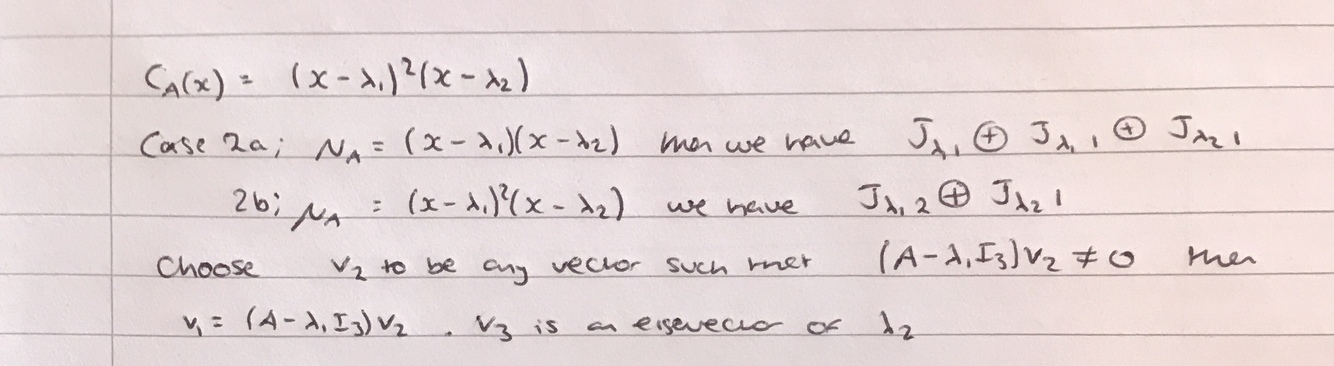 C_A(x) = (x - λ₁)²(x - λ₂)
Case 2a; μ_A = (x - λ₁)(x - λ₂) then we have J_λ₁ ⊕ J_λ₁,₁ ⊕ J_λ₂,₁
2b; μ_A = (x - λ₁)²(x - λ₂) we have J_λ₁,₂ ⊕ J_λ₂,₁
Choose v₂ to be any vector such that (A - λ₁I₃)v₂ ≠ 0 then
v₁ = (A - λ₁I₃)v₂ . v₃ is an eigevector of λ₂